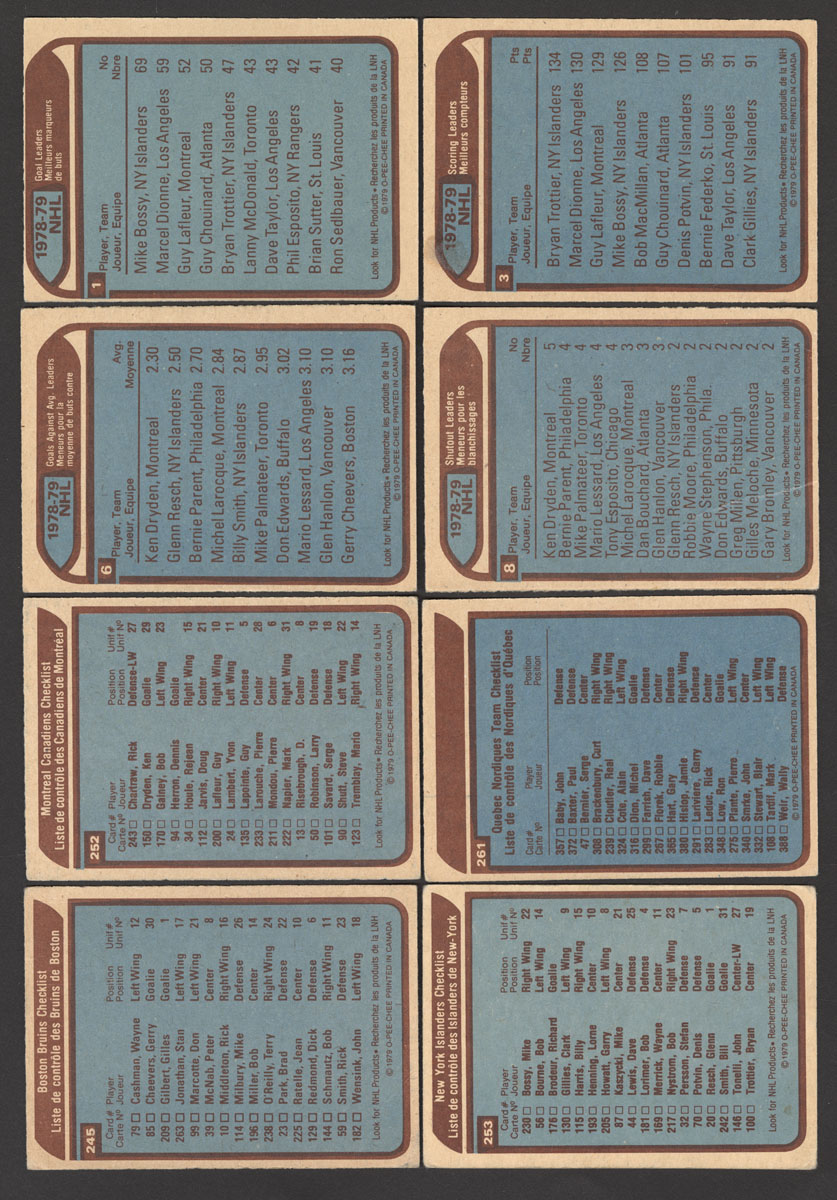 1978-79
NHL
Goal Leaders
Meilleurs marqueurs
de buts
1
Player, Team No
Joueur, Equipe Nbre
Mike Bossy, NY Islanders 69
Marcel Dionne, Los Angeles 59
Guy Lafleur, Montreal 52
Guy Chouinard, Atlanta 50
Bryan Trottier, NY Islanders 47
Lanny McDonald, Toronto 43
Dave Taylor, Los Angeles 43
Phil Esposito, NY Rangers 42
Brian Sutter, St. Louis 41
Ron Sedlbauer, Vancouver 40
Look for NHL Products • Recherchez les produits de la LNH
© 1979 O-PEE-CHEE PRINTED IN CANADA
1978-79
NHL
Scoring Leaders
Meilleurs compteurs
3
Player, Team Pts
Joueur, Equipe Pts
Bryan Trottier, NY Islanders 134
Marcel Dionne, Los Angeles 130
Guy Lafleur, Montreal 129
Mike Bossy, NY Islanders 126
Bob MacMillan, Atlanta 108
Guy Chouinard, Atlanta 107
Denis Potvin, NY Islanders 101
Bernie Federko, St. Louis 95
Dave Taylor, Los Angeles 91
Clark Gillies, NY Islanders 91
Look for NHL Products • Recherchez les produits de la LNH
© 1979 O-PEE-CHEE PRINTED IN CANADA
1978-79
NHL
Goals Against Avg. Leaders
Meneurs pour la
moyenne de buts contre
6
Player, Team Avg.
Joueur, Equipe Moyenne
Ken Dryden, Montreal 2.30
Glenn Resch, NY Islanders 2.50
Bernie Parent, Philadelphia 2.70
Michel Larocque, Montreal 2.84
Billy Smith, NY Islanders 2.87
Mike Palmateer, Toronto 2.95
Don Edwards, Buffalo 3.02
Mario Lessard, Los Angeles 3.10
Glen Hanlon, Vancouver 3.10
Gerry Cheevers, Boston 3.16
Look for NHL Products • Recherchez les produits de la LNH
© 1979 O-PEE-CHEE PRINTED IN CANADA
1978-79
NHL
Shutout Leaders
Meneurs pour les
blanchissages
8
Player, Team No
Joueur, Equipe Nbre
Ken Dryden, Montreal 5
Bernie Parent, Philadelphia 4
Mike Palmateer, Toronto 4
Mario Lessard, Los Angeles 4
Tony Esposito, Chicago 4
Michel Larocque, Montreal 3
Dan Bouchard, Atlanta 3
Glen Hanlon, Vancouver 3
Glenn Resch, NY Islanders 2
Robbie Moore, Philadelphia 2
Wayne Stephenson, Phila. 2
Don Edwards, Buffalo 2
Greg Millen, Pittsburgh 2
Gilles Meloche, Minnesota 2
Gary Bromley, Vancouver 2
Look for NHL Products • Recherchez les produits de la LNH
© 1979 O-PEE-CHEE PRINTED IN CANADA
Montreal Canadiens Checklist
Liste de contrôle des Canadiens de Montréal
252
Card # Player Position Unif #
Carte Nº Joueur Position Unif Nº
243 Chartraw, Rick Defense-LW 27
150 Dryden, Ken Goalie 29
170 Gainey, Bob Left Wing 23
94 Herron, Dennis Goalie
34 Houle, Rejean Right Wing 15
112 Jarvis, Doug Center 21
200 Lafleur, Guy Right Wing 10
24 Lambert, Yvon Left Wing 11
135 Lapointe, Guy Defense 5
233 Larouche, Pierre Center 28
211 Mondou, Pierre Center 6
222 Napier, Mark Right Wing 31
13 Risebrough, D. Center 8
50 Robinson, Larry Defense 19
101 Savard, Serge Defense 18
90 Shutt, Steve Left Wing 22
123 Tremblay, Mario Right Wing 14
Look for NHL Products • Recherchez les produits de la LNH
© 1979 O-PEE-CHEE PRINTED IN CANADA
Quebec Nordiques Team Checklist
Liste de contrôle des Nordiques d'Québec
261
Card # Player Position
Carte Nº Joueur Position
357 Baby, John Defense
372 Baxter, Paul Defense
47 Bernier, Serge Center
308 Brackenbury, Curt Right Wing
239 Cloutier, Real Right Wing
324 Cote, Alain Left Wing
316 Dion, Michel Goalie
290 Farrish, Dave Defense
267 Ftorek, Robbie Center
365 Hart, Gary Defense
380 Hislop, Jamie Right Wing
291 Lariviere, Garry Defense
283 Leduc, Rich Center
348 Low, Ron Goalie
275 Plante, Pierre Right Wing
340 Smrke, John Center
332 Stewart, Blair Left Wing
108 Tardif, Marc Left Wing
388 Weir, Wally Defense
© 1979 O-PEE-CHEE PRINTED IN CANADA
Boston Bruins Checklist
Liste de contrôle des Bruins de Boston
245
Card # Player Position Unif #
Carte Nº Joueur Position Unif Nº
79 Cashman, Wayne Left Wing 12
85 Cheevers, Gerry Goalie 30
209 Gilbert, Gilles Goalie 1
263 Jonathan, Stan Left Wing 17
99 Marcotte, Don Left Wing 21
39 McNab, Peter Center 8
10 Middleton, Rick Right Wing 16
114 Milbury, Mike Defense 26
196 Miller, Bob Center 14
238 O'Reilly, Terry Right Wing 24
23 Park, Brad Defense 22
225 Ratelle, Jean Center 10
129 Redmond, Dick Defense 6
144 Schmautz, Bob Right Wing 11
59 Smith, Rick Defense 23
182 Wensink, John Left Wing 18
Look for NHL Products • Recherchez les produits de la LNH
© 1979 O-PEE-CHEE PRINTED IN CANADA
New York Islanders Checklist
Liste de contrôle des Islanders de New-York
253
Card # Player Position Unif #
Carte Nº Joueur Position Unif Nº
230 Bossy, Mike Right Wing 22
56 Bourne, Bob Left Wing 14
176 Brodeur, Richard Goalie
130 Gillies, Clark Left Wing 9
115 Harris, Billy Right Wing 15
193 Henning, Lorne Center 10
205 Howatt, Garry Left Wing 8
87 Kaszycki, Mike Center 21
44 Lewis, Dave Defense 25
181 Lorimer, Bob Defense 4
169 Merrick, Wayne Center 11
217 Nystrom, Bob Right Wing 23
32 Persson, Stefan Defense 7
70 Potvin, Denis Defense 5
20 Resch, Glenn Goalie 1
242 Smith, Bill Goalie 31
146 Tonelli, John Center-LW 27
100 Trottier, Bryan Center 19
Look for NHL Products • Recherchez les produits de la LNH
© 1979 O-PEE-CHEE PRINTED IN CANADA